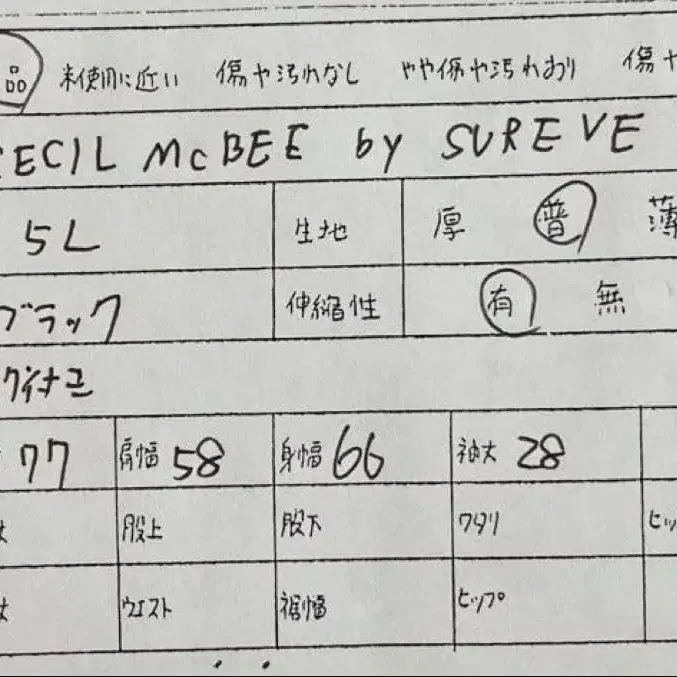 品 未使用に近い 傷や汚れなし やや傷や汚れあり 傷や
CECIL McBEE by SUREVE
5L 生地 厚 普 薄
ブラック 伸縮性 有 無
77 肩幅 58 身幅 66 袖丈 28
丈 股上 股下 ワタリ ヒッ
丈 ウエスト 裾幅 ヒップ